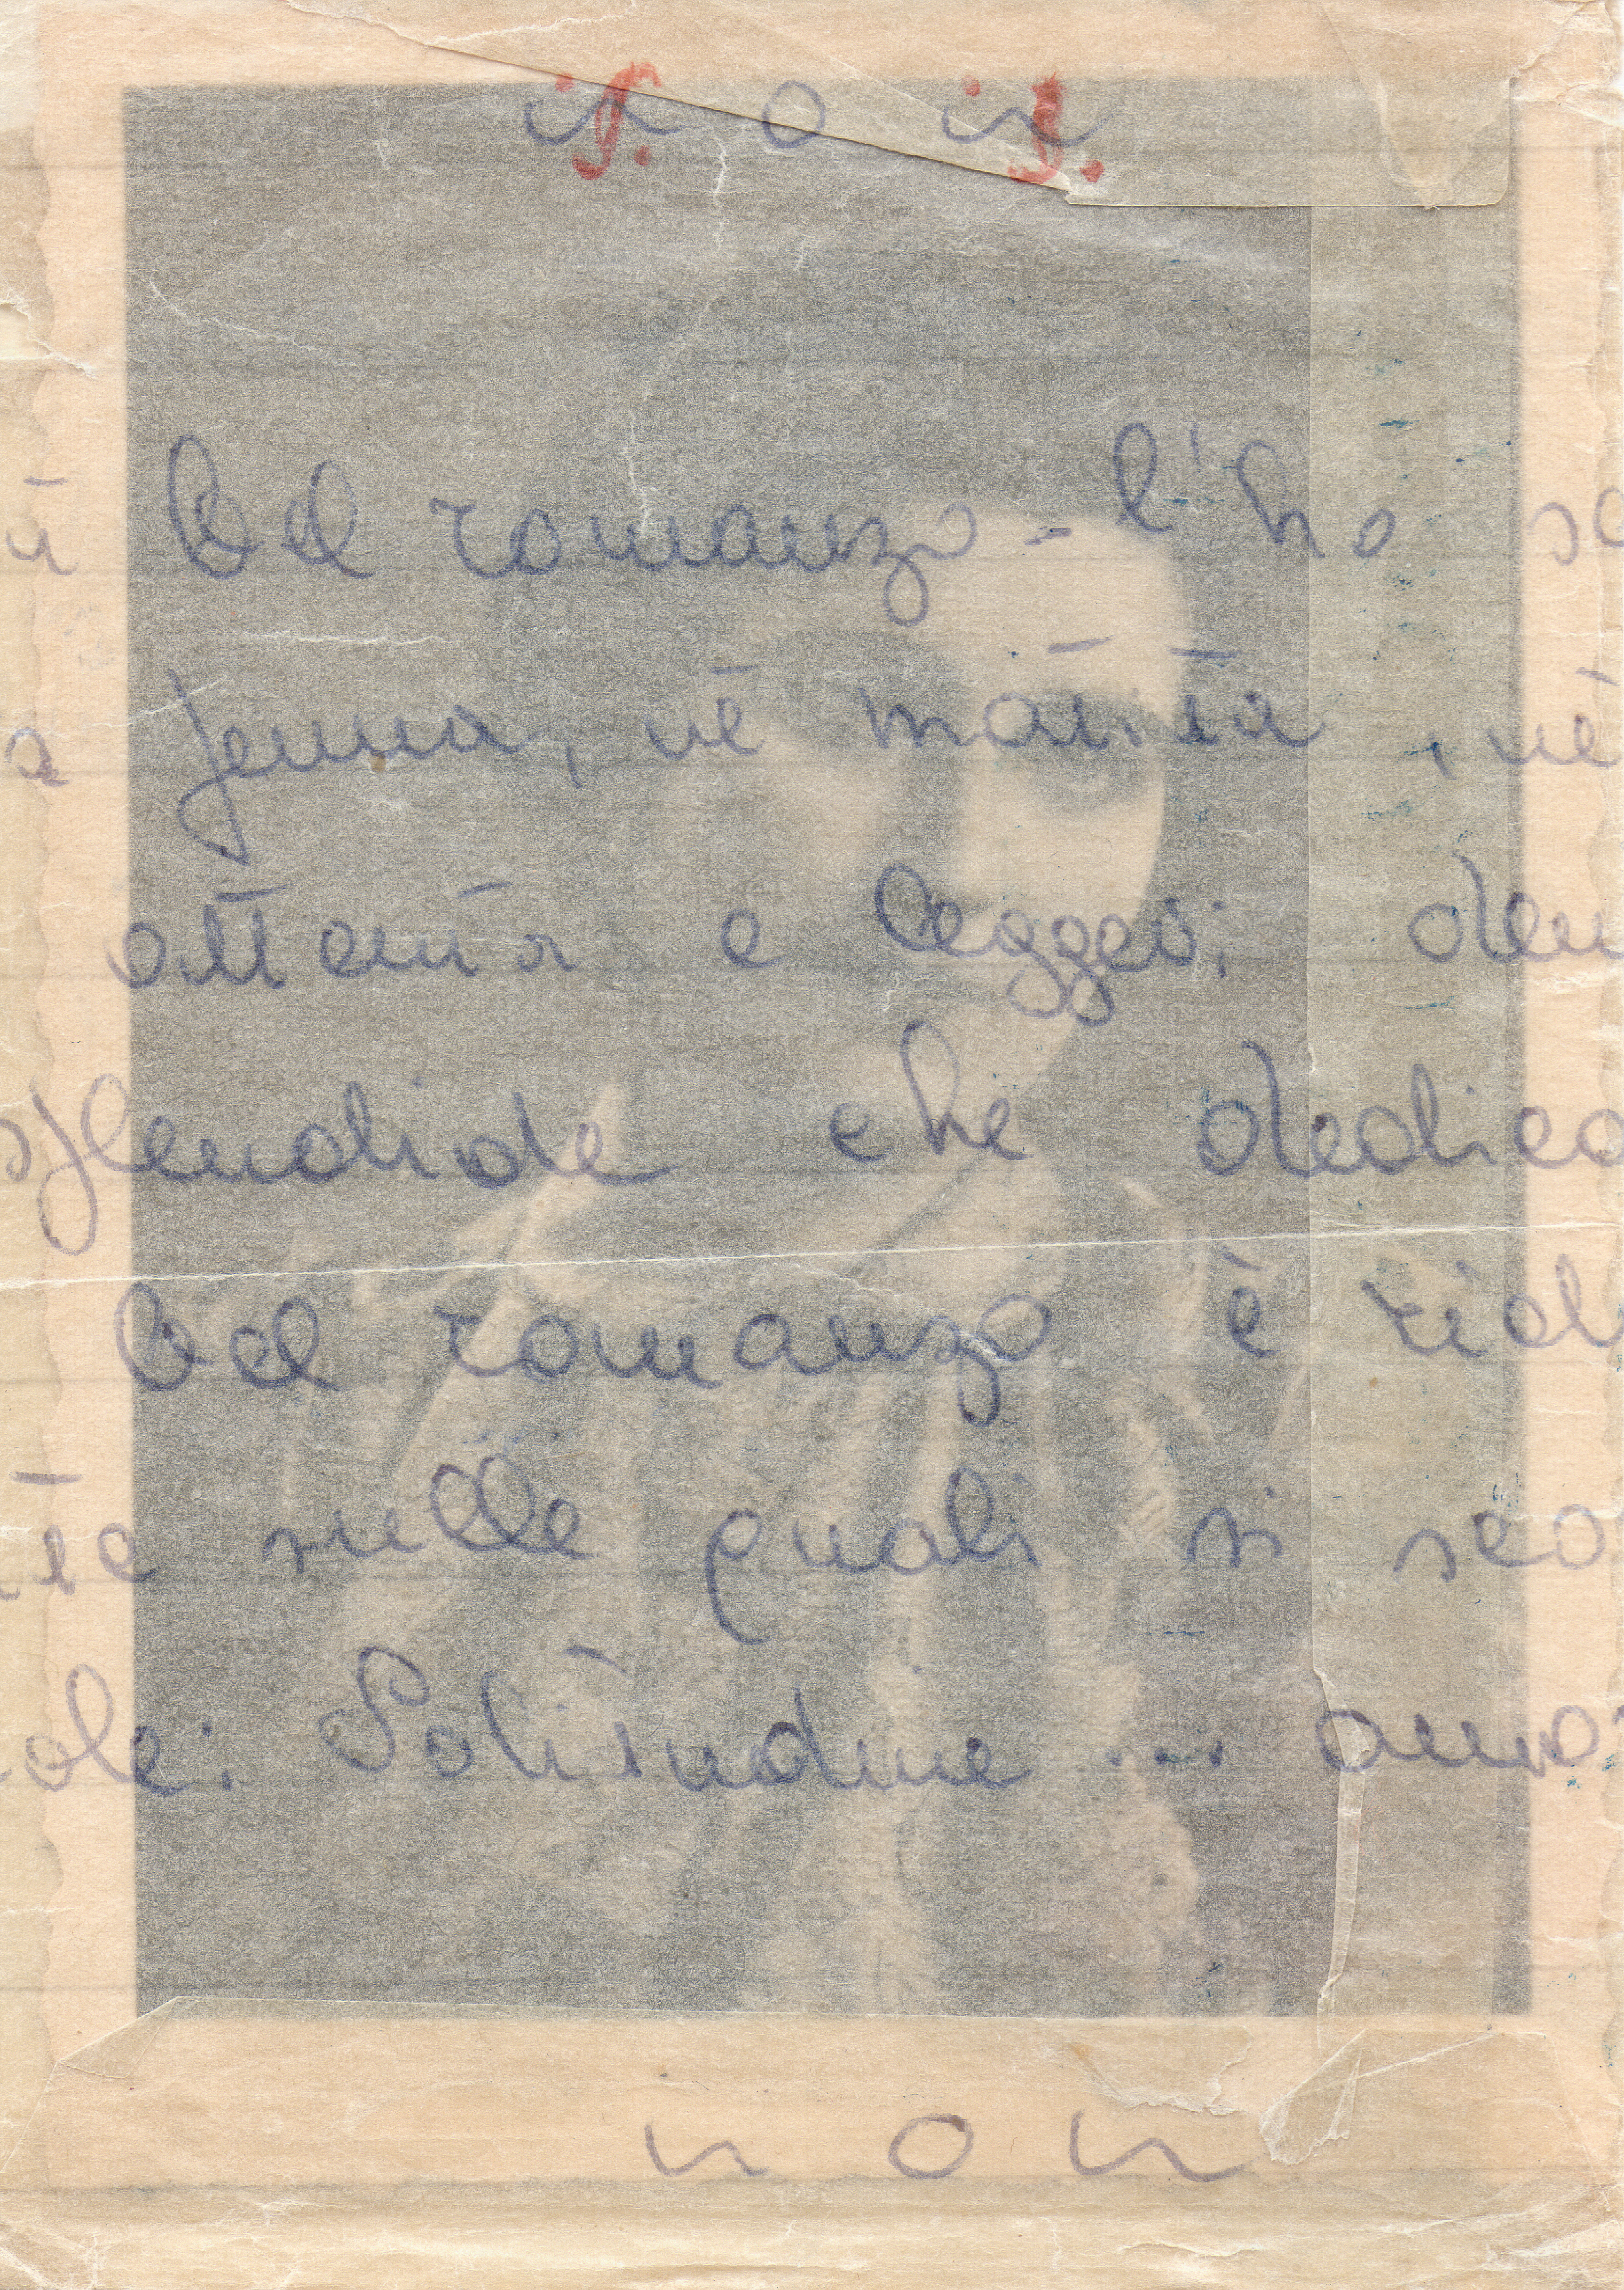 bel romanzo - l'ho sc
a penna, nè matita, nè
attenta e
splendide che dedic
bel romanzo è rid
te nelle quali si
ole: Solitudine ... amo